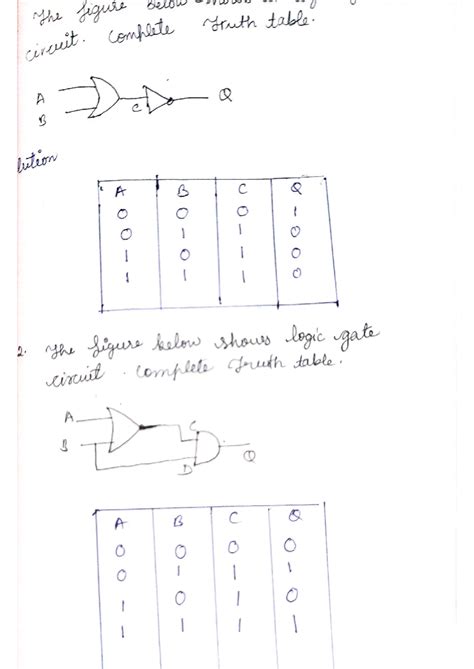 The figure below
circuit. Complete truth table.
A
B
C
Q
lution
A B C Q
0 0 0 1
0 1 1 0
1 0 1 0
1 1 1 0
2. The figure below shows logic gate
circuit. Complete truth table.
A
B
C
D
Q
A B C Q
0 0 0 0
0 1 1 1
1 0 1 0
1 1 1 1